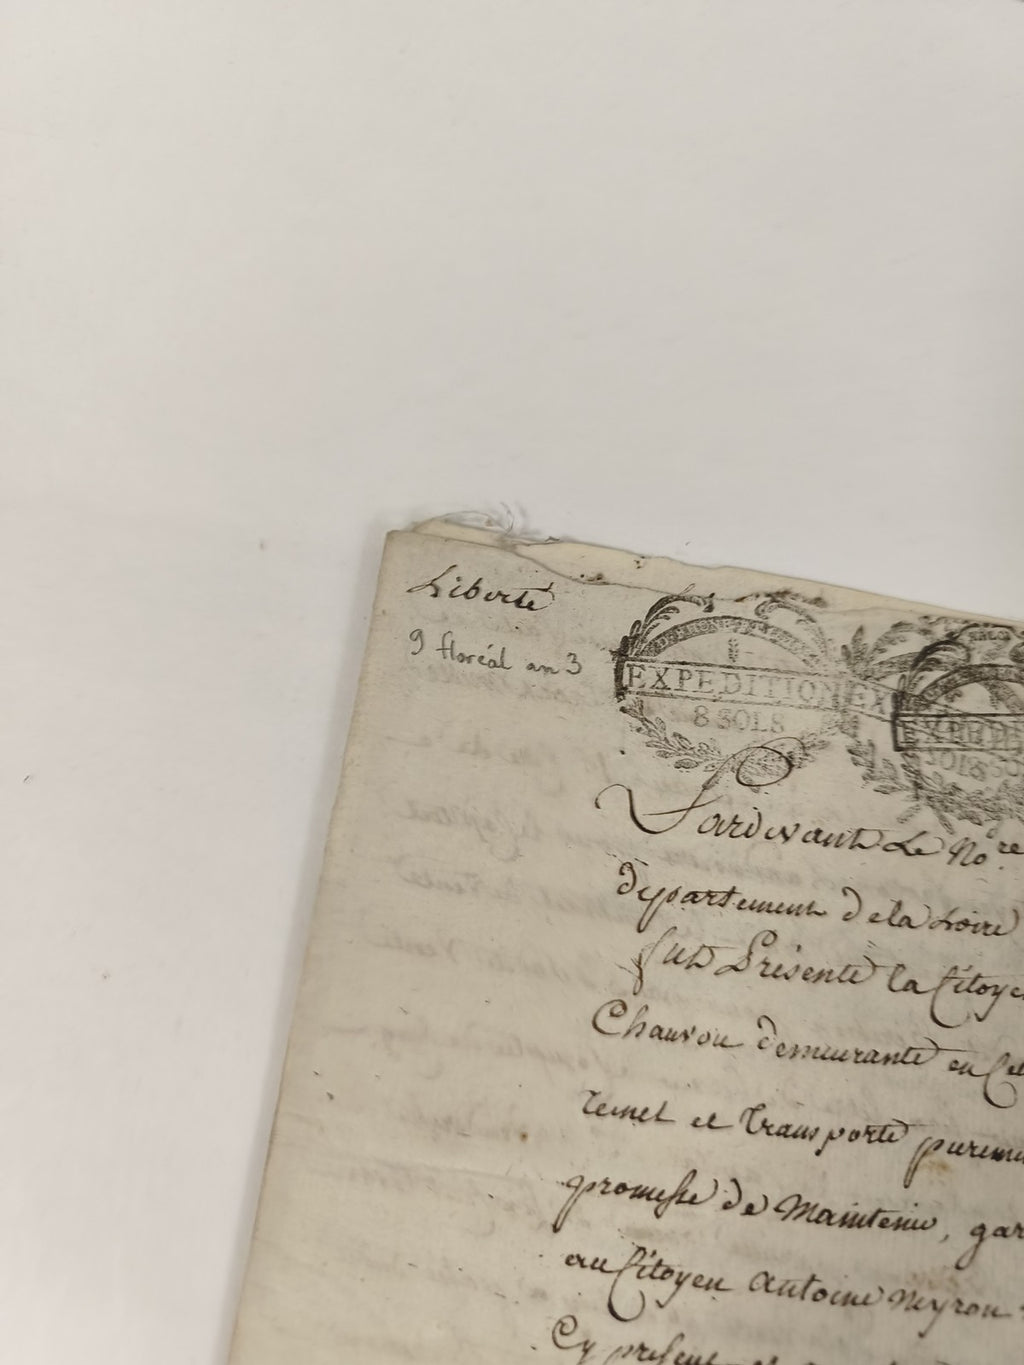 Liberté
9 floréal an 3
EXPEDITION EX EXPEDI
8 SOLS SOLS
Pardevant Le No.re
département de la Loire
fut Présente la Citoye
Chauvou demeurante en Cet
remet et transporte pureme
promesse de Maintenir, gar
au Citoyen Antoine Neyron
Cy présent